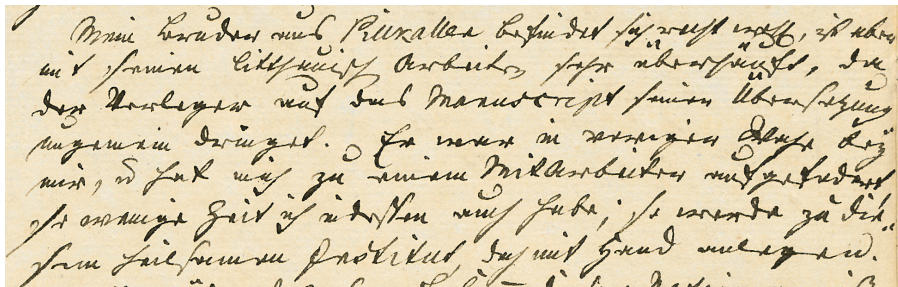 Mein Bruder aus Pillkallen befindet sich recht wohl, ist aber
mit seinen litthauisch Arbeiten sehr überhäuft, da
der Verleger auf das Manuscript seiner Übersetzung
ungemein dringet. Er war in voriger Woche bey
mir, u hat mich zu einem Mitarbeiter aufgefodert
so wenige Zeit ich indessen auch habe, so werde zu die-
sem heilsamen Institut doch mit Hand anlegen.